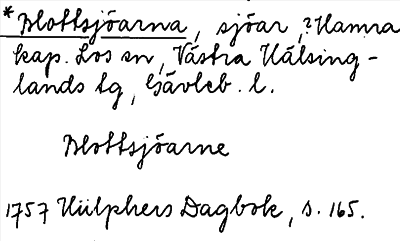 *Blottsjöarna, sjöar, ? Hamra
kap. Los sn, Västra Hälsing-
lands tg, Gävleb. l.
Blottsjöarne
1757 Hülphers Dagbok, s. 165.